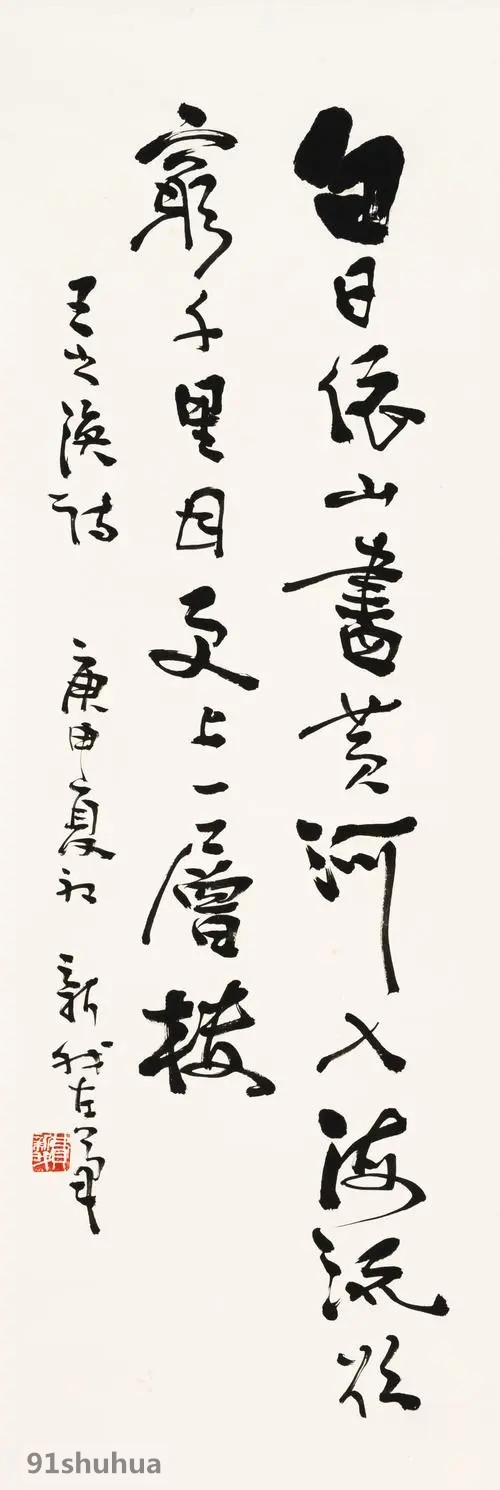 白日依山盡黄河入海流欲
窮千里目更上一層樓
王之渙詩 庚申夏初 新我左筆
91shuhua